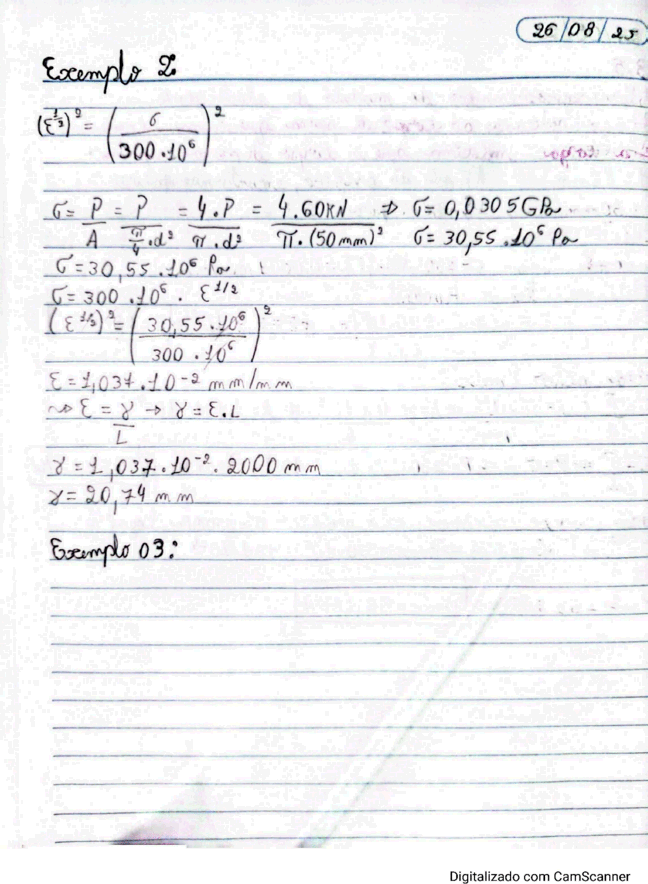 26/08/25
Exemplo 2:
(ε^{1/2})² = (σ / 300.10⁶)²
σ = P/A = P/(π/4 . d²) = 4.P/(π.d²) = 4.60KN/(π.(50mm)²) ⇒ σ = 0,0305GPa
σ = 30,55.10⁶ Pa
σ = 30,55.10⁶ Pa
σ = 300.10⁶ . ε^{1/2}
(ε^{1/2})² = (30,55.10⁶ / 300.10⁶)²
ε = 1,037.10⁻² mm/mm
~> ε = γ/L → γ = ε.L
γ = 1,037.10⁻² . 2000mm
γ = 20,74 mm
Exemplo 03:
Digitalizado com CamScanner